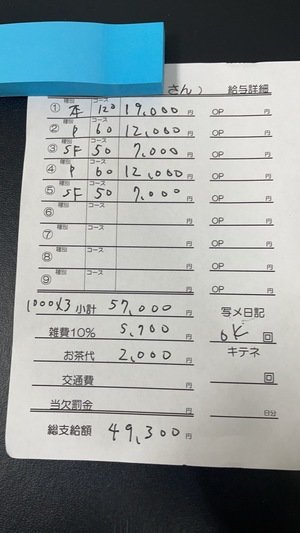 さん） 給与詳細
① 種別 本 コース 120 19,000 円 OP 円
② 種別 P コース 60 12,000 円 OP 円
③ 種別 SF コース 50 7,000 円 OP 円
④ 種別 P コース 60 12,000 円 OP 円
⑤ 種別 SF コース 50 7,000 円 OP 円
⑥ 種別 コース 円 OP 円
⑦ 種別 コース 円 OP 円
⑧ 種別 コース 円 OP 円
⑨ 種別 コース 円 OP 円
1000×3 小計 57,000 円 写メ日記
雑費10% 5,700 円 OK 回
お茶代 2,000 円 キテネ
交通費 円 回
当欠罰金 円 日分
総支給額 49,300 円